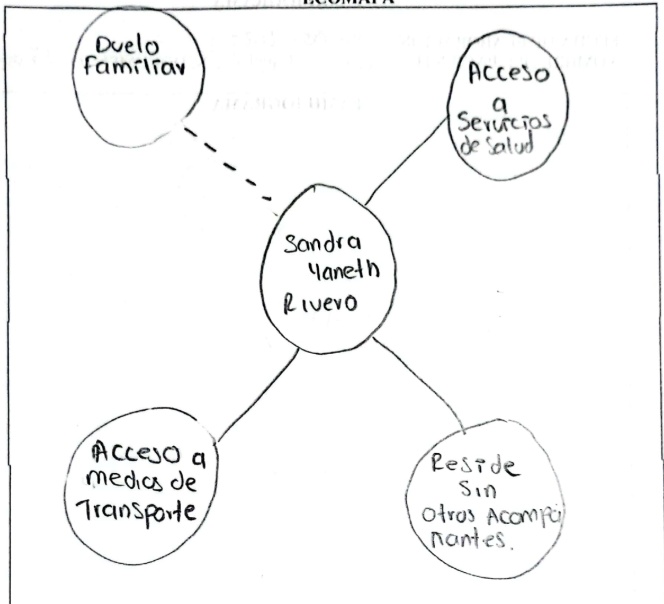 ECOMAPA
Duelo
familiar
Acceso
a
Servicios
de Salud
Sandra
Yaneth
Rivero
Acceso a
medios de
Transporte
Reside
Sin
otros Acompa
ñantes.